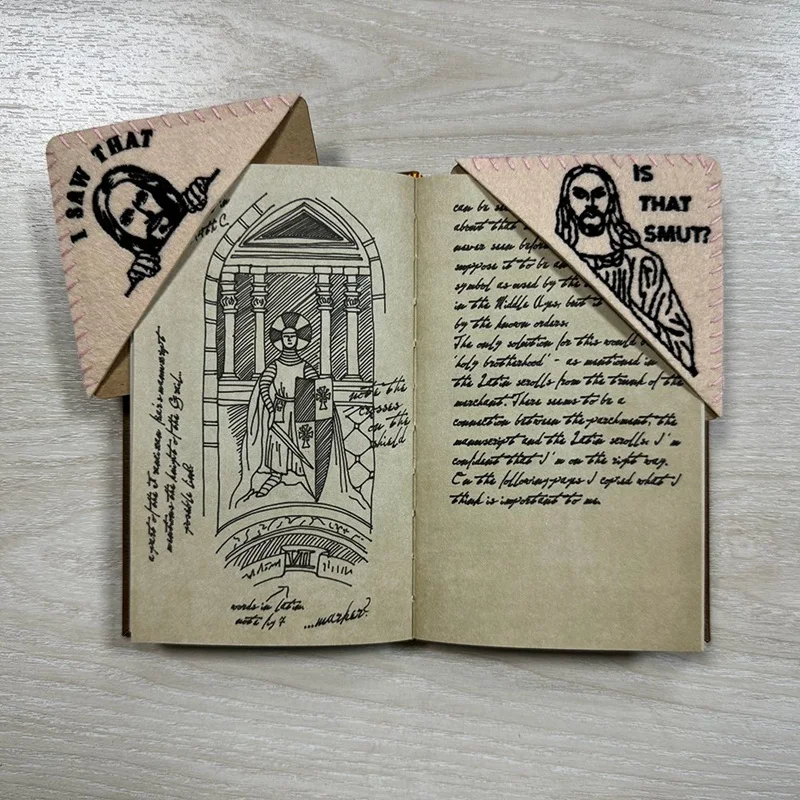 I SAW THAT
IS
THAT
SMUT?
note the
crosses
on the
shield
a part of the
mentions the knight of the Grail.
possible link
VIII
words in latin
note
...marker?
can be
about that
never seen before
suppose it to be an
symbol as used by the
in the Middle Ages, but
by the known orders.
The only solution for this would b
'holy brotherhood' - as mentioned in
the Latin scrolls from the trunk of the
merchant. There seems to be a
connection between the parchment, the
manuscript and the Latin scrolls. I'm
confident that I'm on the right way.
On the following pages I copied what I
think is important to me.